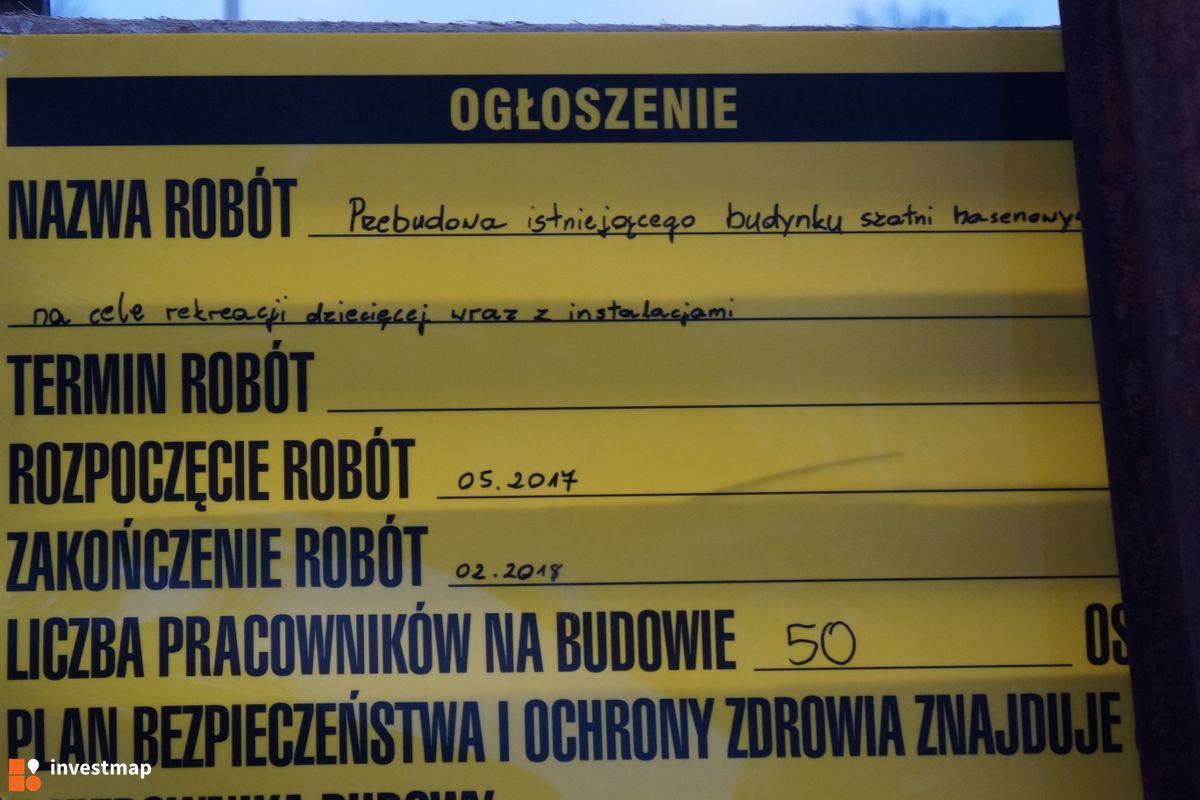 OGŁOSZENIE
NAZWA ROBÓT Przebudowa istniejącego budynku szatni
na cele rekreacji dziecięcej wraz z instalacjami
TERMIN ROBÓT
ROZPOCZĘCIE ROBÓT 05.2017
ZAKOŃCZENIE ROBÓT 02.2018
LICZBA PRACOWNIKÓW NA BUDOWIE 50 OS
PLAN BEZPIECZEŃSTWA I OCHRONY ZDROWIA ZNAJDUJE
KIEROWNIKA BUDOWY
investmap